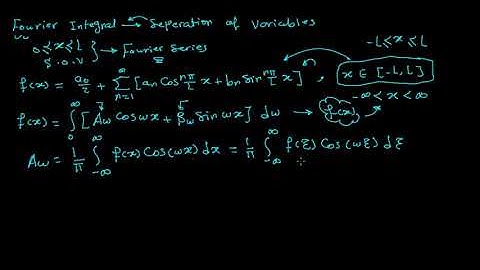 Fourier Integral → Seperation of Variables
0≤x≤L } → Fourier Series
S.O.V
-L≤x≤L
f(x) = a₀/2 + ∑_{n=1}^{∞} [aₙ Cos nπ/L x + bₙ sin nπ/L x] , x ∈ [-L, L]
-∞<x<∞
f(x) = ∫_0^∞ [Aω Cos ωx + Bω Sin ωx] dω → f(x)
Aω = 1/π ∫_{-∞}^{∞} f(x) Cos(ωx) dx = 1/π ∫_{-∞}^{∞} f(ξ) Cos(ωξ) dξ